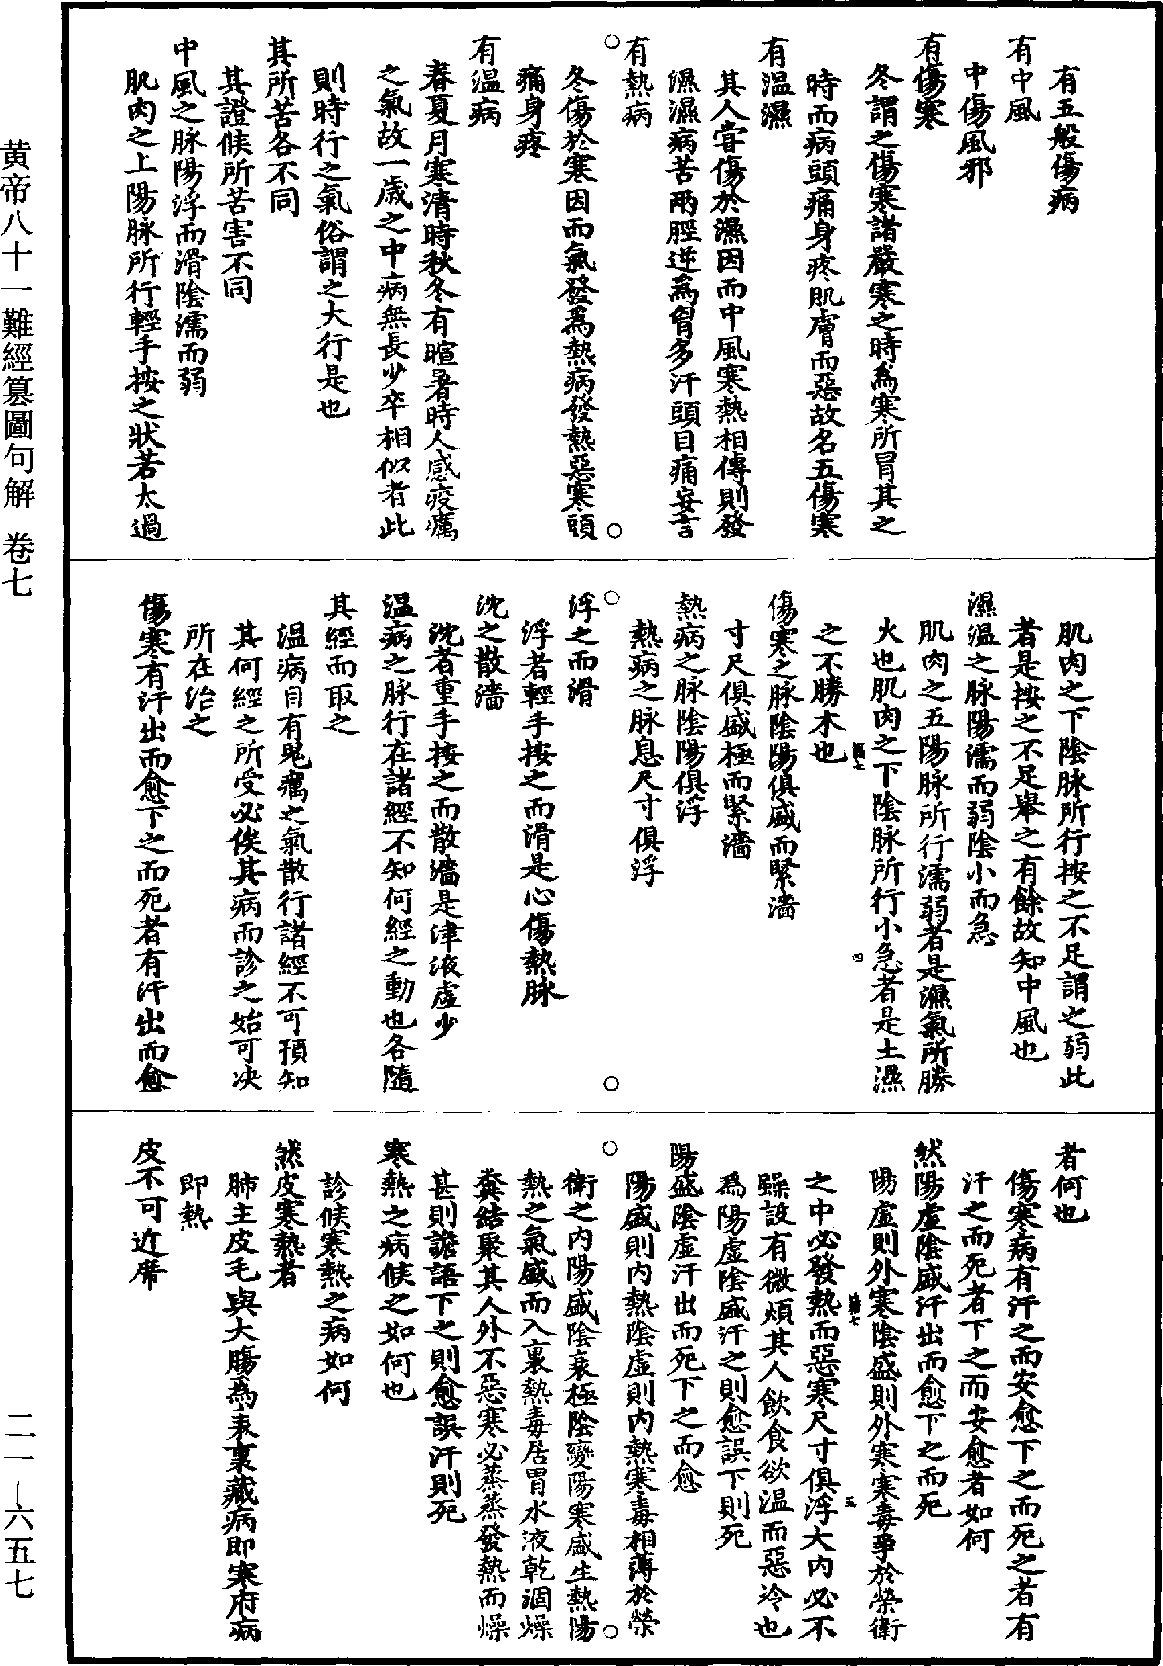 有五般傷病
有中風
中傷風邪
有傷寒
冬謂之傷寒諸嚴寒之時為寒所冒其之
時而病頭痛身疼肌膚而惡故名五傷寒
有溫濕
其人嘗傷於濕因而中風寒熱相傳則發
濕濕病苦兩脛逆為胷多汗頭目痛妄言
有熱病
冬傷於寒因而氣發為熱病發熱惡寒頭
痛身疼
有溫病
春夏月寒清時秋冬有暄暑時人感疫癘
之氣故一歲之中病無長少卒相似者此
則時行之氣俗謂之大行是也
其所苦各不同
其證候所苦害不同
中風之脉陽浮而滑陰濡而弱
肌肉之上陽脉所行輕手按之狀若太過
肌肉之下陰脉所行按之不足謂之弱此
者是按之不足舉之有餘故知中風也
濕溫之脉陽濡而弱陰小而急
肌肉之五陽脉所行濡弱者是濕氣所勝
火也肌肉之下陰脉所行小急者是土濕
之不勝木也
四
傷寒之脉陰陽俱盛而緊濇
寸尺俱盛極而緊濇
熱病之脉陰陽俱浮
熱病之脉息尺寸俱浮
浮之而滑
浮者輕手按之而滑是心傷熱脉
沈之散濇
沈者重手按之而散濇是津液虛少
溫病之脉行在諸經不知何經之動也各隨
其經而取之
溫病目有鬼癘之氣散行諸經不可預知
其何經之所受必俟其病而診之始可决
所在治之
傷寒有汗出而愈下之而死者有汗出而愈
者何也
傷寒病有汗之而安愈下之而死之者有
汗之而死者下之而安愈者如何
然陽虛陰盛汗出而愈下之而死
陽虛則外寒陰盛則外寒寒毒爭於榮衛
之中必發熱而惡寒尺寸俱浮大内必不
五
躁設有微煩其人飲食欲溫而惡冷也
為陽虛陰盛汗之則愈誤下則死
陽盛陰虛汗出而死下之而愈
陽盛則内熱陰虛則内熱寒毒相薄於榮
衛之内陽盛陰衰極陰變陽寒盛生熱陽
熱之氣盛而入裏熱毒居胃水液乾涸燥
糞結聚其人外不惡寒必蒸蒸發熱而燥
甚則譫語下之則愈誤汗則死
寒熱之病候之如何也
診候寒熱之病如何
然皮寒熱者
肺主皮毛與大腸為表裏藏病即寒府病
即熱
皮不可近席
黄帝八十一難經纂圖句解 卷七
二一—六五七